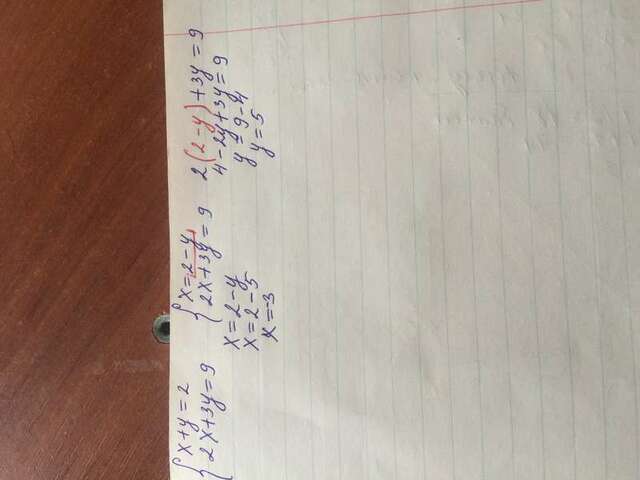 { x+y=2
2x+3y=9
{ x=2-y
2x+3y=9
x=2-y
x=2-5
x=-3
2(2-y)+3y=9
4-2y+3y=9
y=9-4
y=5